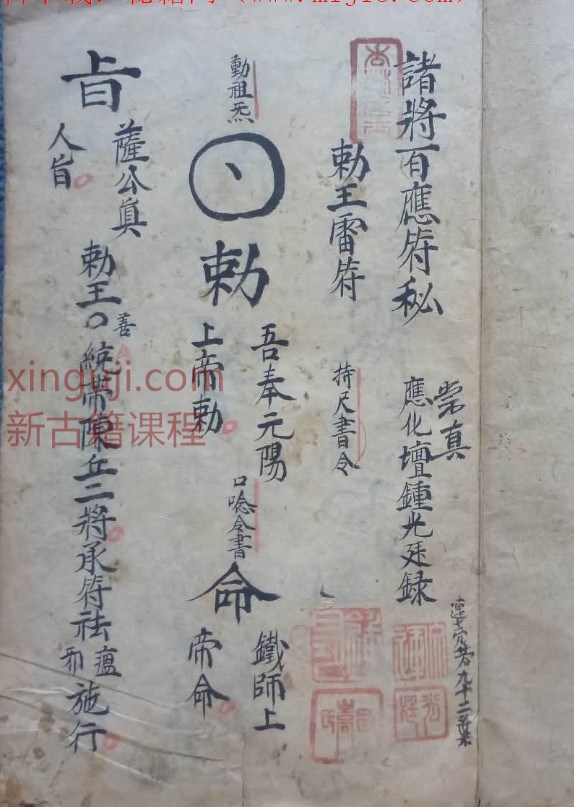 諸將百應符秘
崇真
應化壇鍾光廷録
勅王雷符
持尺書令
動祖炁
勅
吾奉元陽
上帝勅
口唸令書
命
鐵師上
帝命
旨
薩公真
人旨
勅王善統帶陳丘二將承符祛瘟邪施行
xinguji.com
新古籍课程